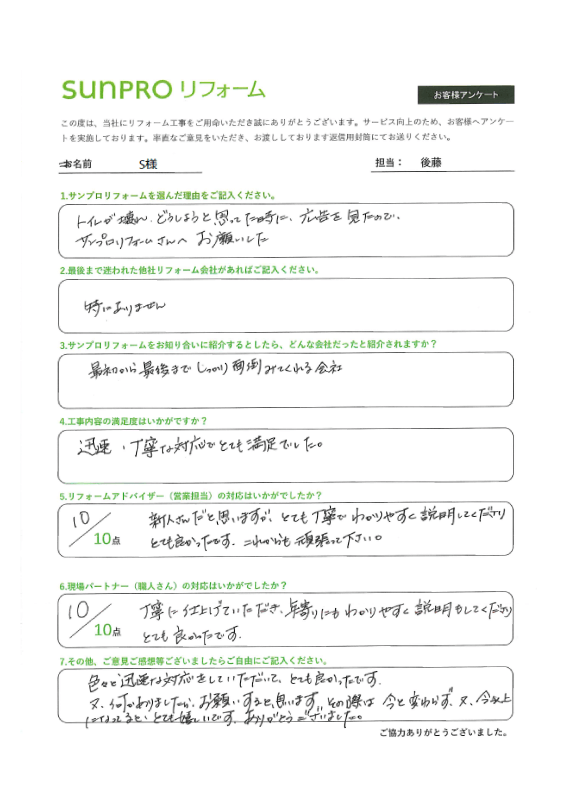 SUNPRO リフォーム
お客様アンケート
この度は、当社にリフォーム工事をご用命いただき誠にありがとうございます。サービス向上のため、お客様へアンケー
トを実施しております。率直なご意見をいただき、お渡ししております返信用封筒にてお送りください。
お名前 S様 担当： 後藤
1.サンプロリフォームを選んだ理由をご記入ください。
トイレが壊れ、どうしようと思ってた時に、広告を見たので、
サンプロリフォームさんへ お願いした
2.最後まで迷われた他社リフォーム会社があればご記入ください。
特にありません
3.サンプロリフォームをお知り合いに紹介するとしたら、どんな会社だったと紹介されますか？
最初から最後までしっかり面倒みてくれる会社
4.工事内容の満足度はいかがですか？
迅速・丁寧な対応でとても満足でした。
5.リフォームアドバイザー（営業担当）の対応はいかがでしたか？
10/10点
新人さんだと思いますが、とても丁寧でわかりやすく説明してくださり
とても良かったです。これからも頑張って下さい。
6.現場パートナー（職人さん）の対応はいかがでしたか？
10/10点
丁寧に仕上げていただき、年寄りにもわかりやすく説明もしてくださり
とても良かったです。
7.その他、ご意見ご感想等ございましたらご自由にご記入ください。
色々と迅速な対応をしていただいて、とても良かったです。
又、何かありましたら、お願いすると思います。その際は 今と変わらず、又、今以上
になってるととても嬉しいです。ありがとうございました。
ご協力ありがとうございました。